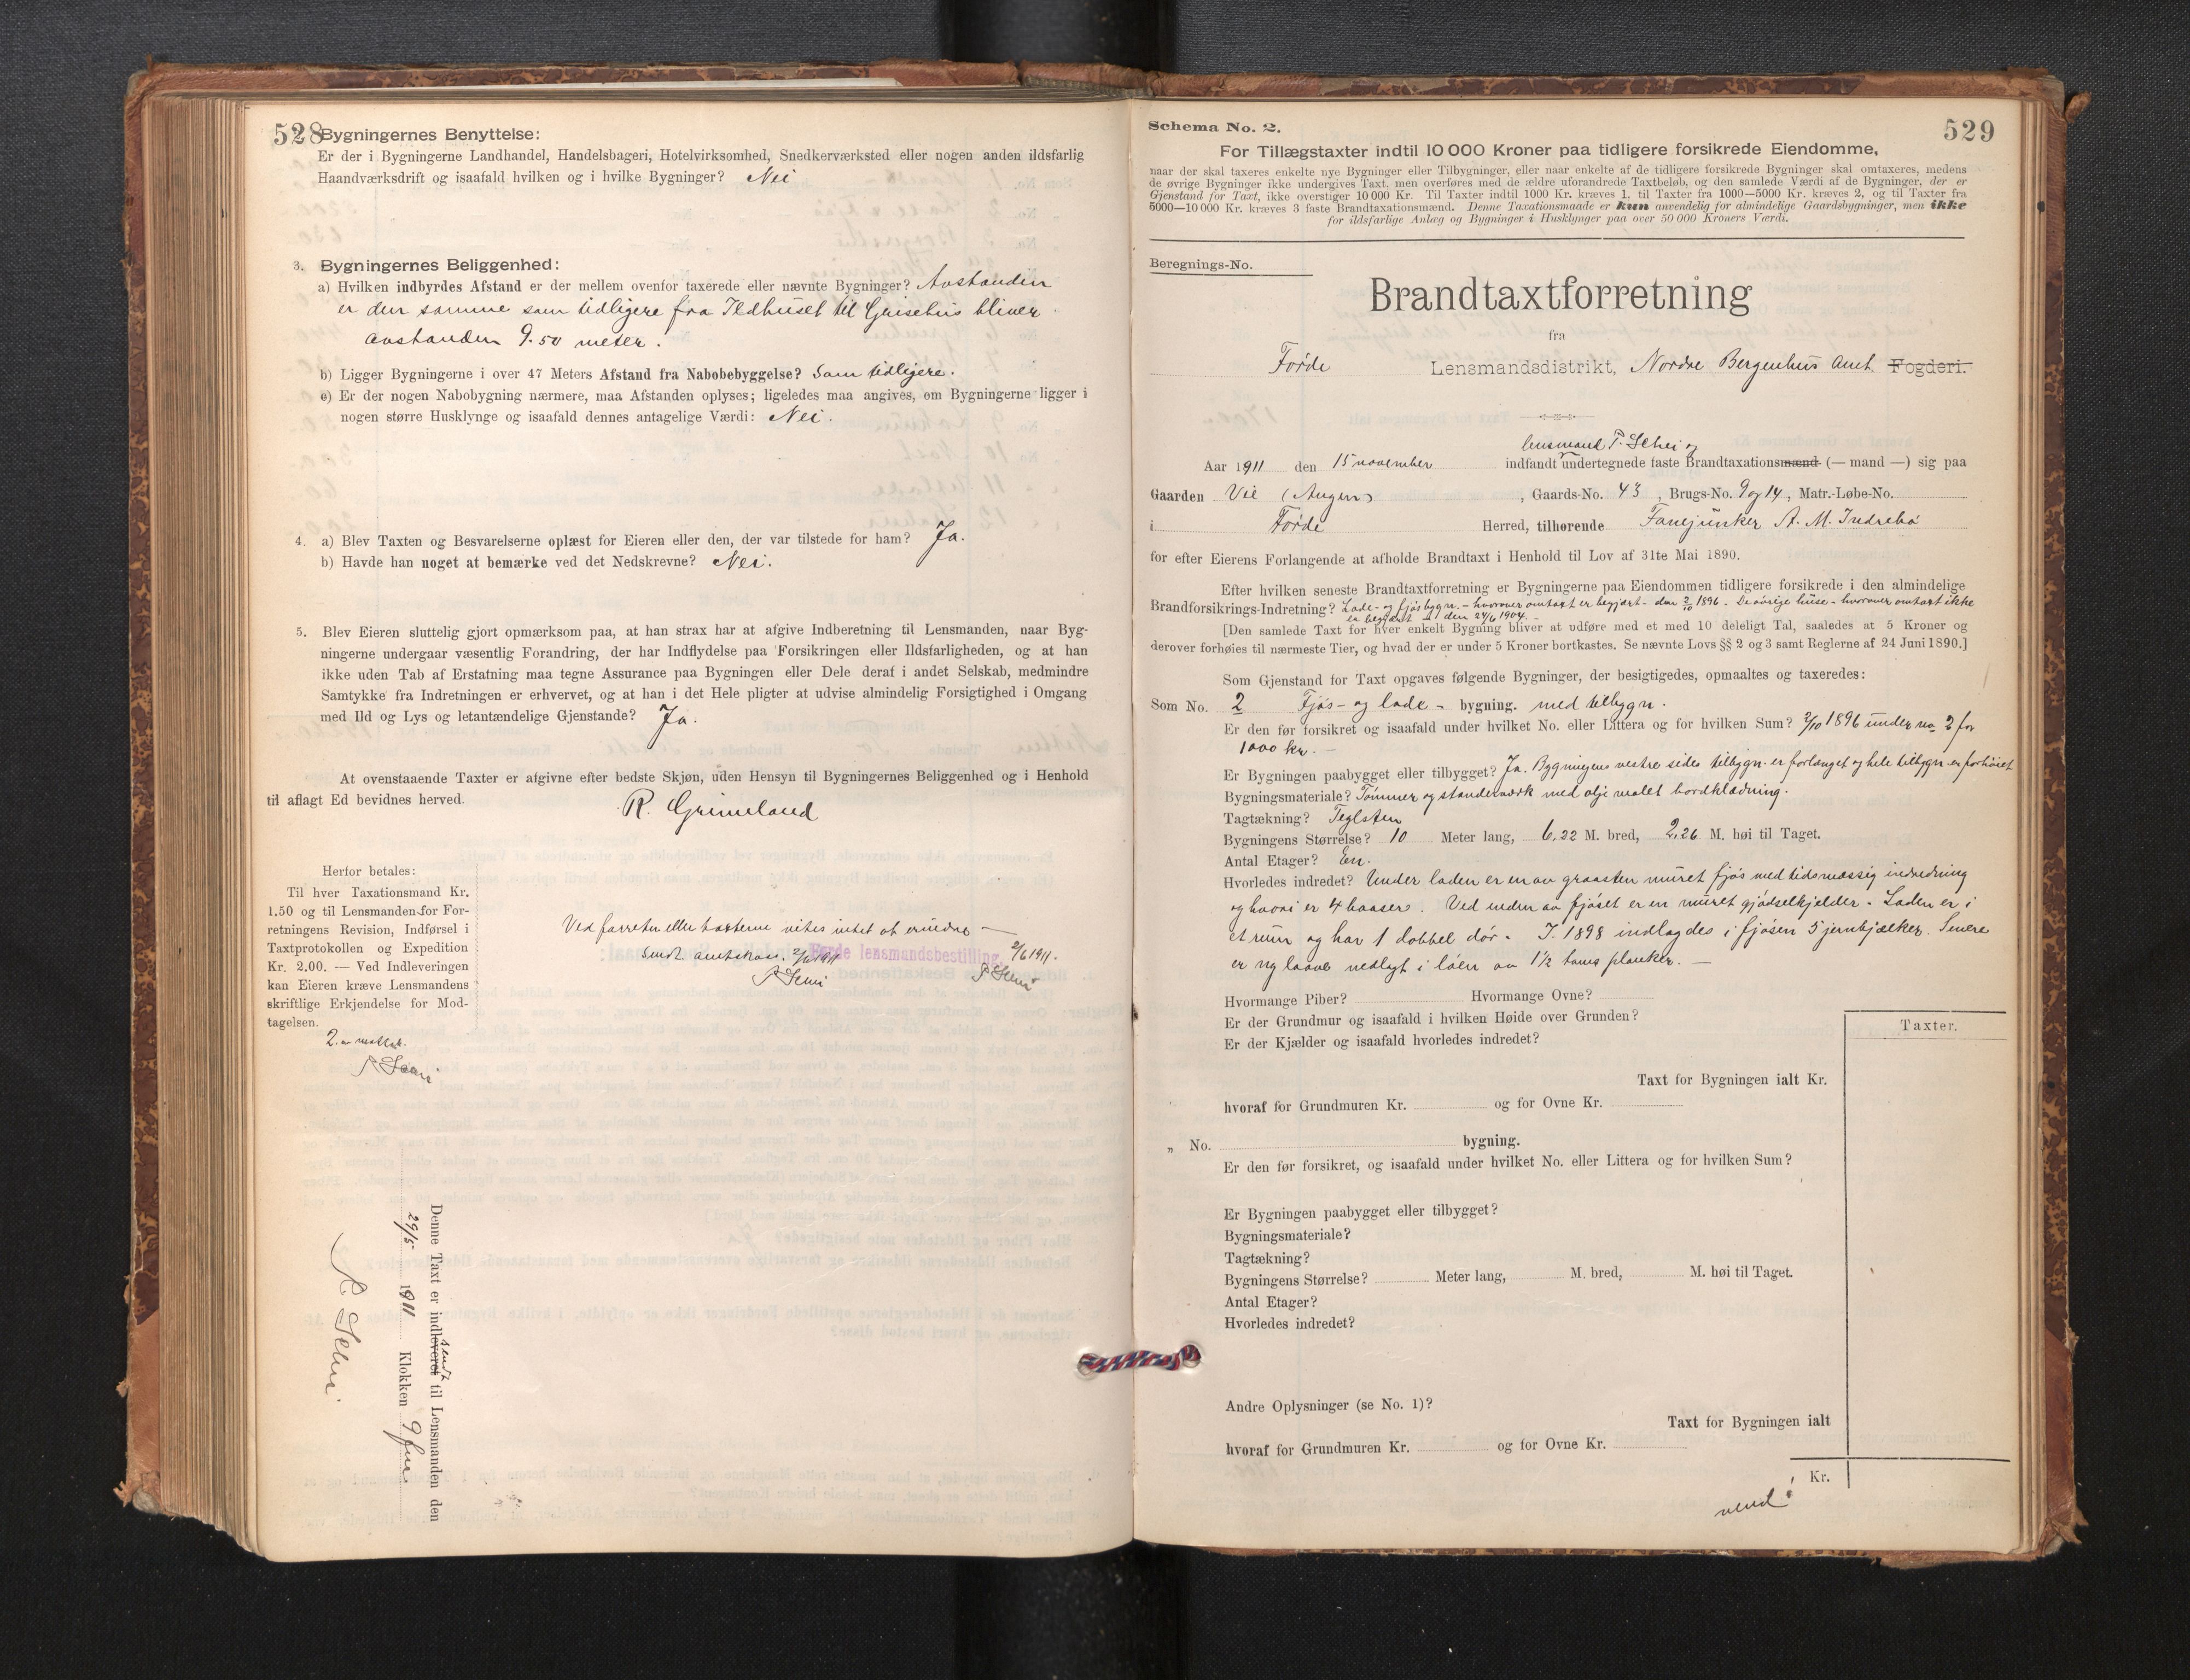 528
Bygningernes Benyttelse:
Er der i Bygningerne Landhandel, Handelsbageri, Hotelvirksomhed, Snedkerværksted eller nogen anden ildsfarlig
Haandværksdrift og isaafald hvilken og i hvilke Bygninger? Nei
3. Bygningernes Beliggenhed:
a) Hvilken indbyrdes Afstand er der mellem ovenfor taxerede eller nævnte Bygninger? Avstanden
er den samme som tidligere fra Ildhuset til Grisehus bliver
avstanden 9.50 meter.
b) Ligger Bygningerne i over 47 Meters Afstand fra Nabobebyggelse? Som tidligere.
c) Er der nogen Nabobygning nærmere, maa Afstanden oplyses; ligeledes maa angives, om Bygningerne ligger i
nogen større Husklynge og isaafald dennes antagelige Værdi: Nei.
4. a) Blev Taxten og Besvarelserne oplæst for Eieren eller den, der var tilstede for ham? Ja.
b) Havde han noget at bemærke ved det Nedskrevne? Nei.
5. Blev Eieren sluttelig gjort opmærksom paa, at han strax har at afgive Indberetning til Lensmanden, naar Byg-
ningerne undergaar væsentlig Forandring, der har Indflydelse paa Forsikringen eller Ildsfarligheden, og at han
ikke uden Tab af Erstatning maa tegne Assurance paa Bygningen eller Dele deraf i andet Selskab, medmindre
Samtykke fra Indretningen er erhvervet, og at han i det Hele pligter at udvise almindelig Forsigtighed i Omgang
med Ild og Lys og letantændelige Gjenstande? Ja.
At ovenstaaende Taxter er afgivne efter bedste Skjøn, uden Hensyn til Bygningernes Beliggenhed og i Henhold
til aflagt Ed bevidnes herved.
R. Grimeland
Herfor betales:
Til hver Taxationsmand Kr.
1.50 og til Lensmanden for For-
retningens Revision, Indførsel i
Taxtprotokollen og Expedition
Kr. 2.00. — Ved Indleveringen
kan Eieren kræve Lensmandens
skriftlige Erkjendelse for Mod-
tagelsen.
Ved forretn eller taxterne vites intet at erindre —
Førde lensmandsbestilling, 2/6 1911.
Sendt amtskas. 2/6 1911
P Schei
P Schei
Denne Taxt er indleveret sendt til Lensmanden den
29/5 1911 Klokken 9 fm
P. Schei
529
Schema No. 2.
For Tillægstaxter indtil 10 000 Kroner paa tidligere forsikrede Eiendomme,
naar der skal taxeres enkelte nye Bygninger eller Tilbygninger, eller naar enkelte af de tidligere forsikrede Bygninger skal omtaxeres, medens
de øvrige Bygninger ikke undergives Taxt, men overføres med de ældre uforandrede Taxtbeløb, og den samlede Værdi af de Bygninger, der er
Gjenstand for Taxt, ikke overstiger 10 000 Kr. Til Taxter indtil 1000 Kr. kræves 1, til Taxter fra 1000—5000 Kr. kræves 2, og til Taxter fra
5000—10 000 Kr. kræves 3 faste Brandtaxationsmænd. Denne Taxationsmaade er kun anvendelig for almindelige Gaardsbygninger, men ikke
for ildsfarlige Anlæg og Bygninger i Husklynger paa over 50 000 Kroners Værdi.
Beregnings-No.
Brandtaxtforretning
fra
Førde Lensmandsdistrikt, Nordre Bergenhus Amt. Fogderi.
lensmand P. Schei og
Aar 1911 den 15 november indfandt undertegnede faste Brandtaxationsmænd (— mand —) sig paa
Gaarden Vie (Angen), Gaards-No. 43, Brugs-No. 9 og 14, Matr.-Løbe-No.
i Førde Herred, tilhørende Fanejunker A. M. Indrebø
for efter Eierens Forlangende at afholde Brandtaxt i Henhold til Lov af 31te Mai 1890.
Efter hvilken seneste Brandtaxtforretning er Bygningerne paa Eiendommen tidligere forsikrede i den almindelige
Brandforsikrings-Indretning? Lade- og fjøsbygn. - hvorover omtaxt er begjært - den 2/10 1896. De øvrige huse - hvorover omtaxt ikke
er begjært den 24/6 1904.
[Den samlede Taxt for hver enkelt Bygning bliver at udføre med et med 10 deleligt Tal, saaledes at 5 Kroner og
derover forhøies til nærmeste Tier, og hvad der er under 5 Kroner bortkastes. Se nævnte Lovs §§ 2 og 3 samt Reglerne af 24 Juni 1890.]
Som Gjenstand for Taxt opgaves følgende Bygninger, der besigtigedes, opmaaltes og taxeredes:
Som No. 2 Fjøs- og lade- bygning. med tilbygn.
Er den før forsikret og isaafald under hvilket No. eller Littera og for hvilken Sum? 2/10 1896 under no 2 for
1000 kr. —
Er Bygningen paabygget eller tilbygget? Ja. Bygningens vestre sides tilbygn. er forlænget og hele tilbygn er forhøiet
Bygningsmateriale? Tømmer og standerverk med oljemalet bordklædning.
Tagtækning? Teglsten
Bygningens Størrelse? 10 Meter lang, 6,22 M. bred, 2,26 M. høi til Taget.
Antal Etager? En.
Hvorledes indredet? Under laden er en av graasten muret fjøs med tidsmæssig indredning
og hvori er 4 baaser. Ved enden av fjøset er en muret gjødselkjelder. Laden er i
et rum og har 1 dobbel dør. I 1898 indlagdes i fjøsen 5 jernbjælker. Senere
er ny laave nedlagt i løen av 1½ toms planker. —
Hvormange Piber? Hvormange Ovne?
Er der Grundmur og isaafald i hvilken Høide over Grunden?
Er der Kjælder og isaafald hvorledes indredet?
Taxter.
Taxt for Bygningen ialt Kr.
hvoraf for Grundmuren Kr. og for Ovne Kr.
„ No. bygning.
Er den før forsikret, og isaafald under hvilket No. eller Littera og for hvilken Sum?
Er Bygningen paabygget eller tilbygget?
Bygningsmateriale?
Tagtækning?
Bygningens Størrelse? Meter lang, M. bred, M. høi til Taget.
Antal Etager?
Hvorledes indredet?
Andre Oplysninger (se No. 1)?
Taxt for Bygningen ialt
hvoraf for Grundmuren Kr. og for Ovne Kr.
Kr.
vend!